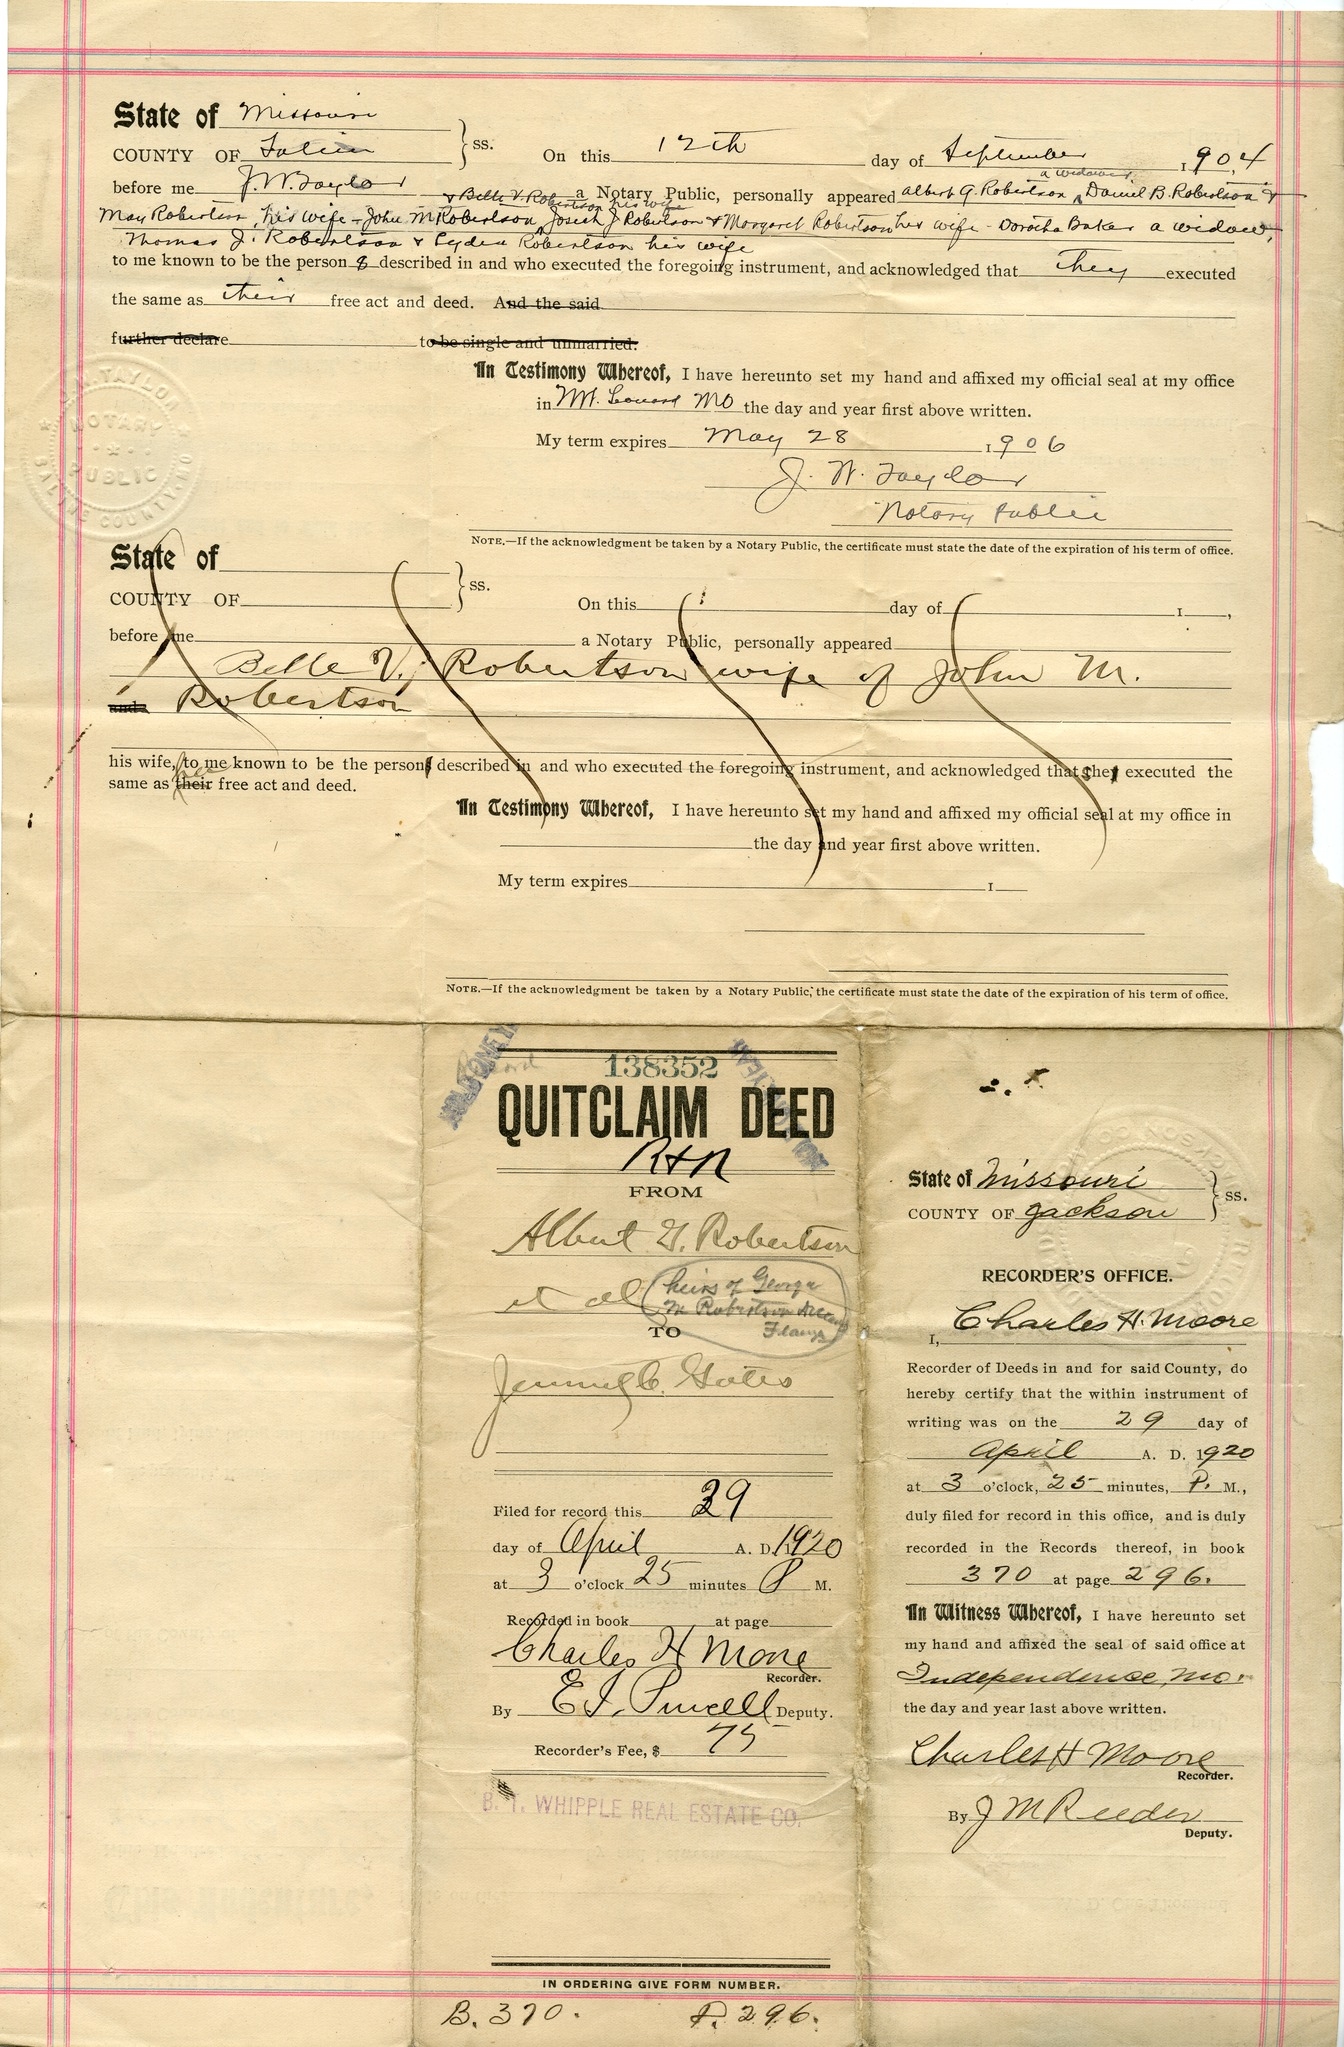 State of Missouri
COUNTY OF } ss. On this 12th day of September , 1904
before me J. W. Taylor a Notary Public, personally appeared Albert G. Robertson a widower, Daniel B. Robertson &
May Robertson, his wife - John M Robertson & Belle V. Robertson his wife Josiah J Robertson & Margaret Robertson his wife - Dorotha Baker a widow,
Thomas J. Robertson & Lydea Robertson his wife
to me known to be the person s described in and who executed the foregoing instrument, and acknowledged that they executed
the same as their free act and deed. And the said
further declare to be single and unmarried.
In Testimony Whereof, I have hereunto set my hand and affixed my official seal at my office
in Mt. Leonard Mo the day and year first above written.
My term expires May 28 1906
J. W. Taylor
Notary Public
J. W. TAYLOR
NOTARY PUBLIC
SALINE COUNTY, MO
NOTE.—If the acknowledgment be taken by a Notary Public, the certificate must state the date of the expiration of his term of office.
State of
COUNTY OF } ss. On this day of 1 ,
before me a Notary Public, personally appeared
Belle V. Robertson wife of John M.
and Robertson
his wife, to me known to be the person described in and who executed the foregoing instrument, and acknowledged that she executed the
same as their her free act and deed.
In Testimony Whereof, I have hereunto set my hand and affixed my official seal at my office in
the day and year first above written.
My term expires 1
NOTE.—If the acknowledgment be taken by a Notary Public, the certificate must state the date of the expiration of his term of office.
138352
QUITCLAIM DEED
R+R
FROM
Albert G. Robertson
et al
heirs of George
M Robertson
TO
Jemmy C. Gates
Filed for record this 29
day of April A. D. 1920
at 3 o'clock 25 minutes P M.
Recorded in book at page
Charles H Moore
Recorder.
By E. J. Purcell Deputy.
Recorder's Fee, $ 75
B. T. WHIPPLE REAL ESTATE CO.
IN ORDERING GIVE FORM NUMBER.
B. 370. P. 296.
State of Missouri
COUNTY OF Jackson } ss.
RECORDER'S OFFICE.
I, Charles H. Moore
Recorder of Deeds in and for said County, do
hereby certify that the within instrument of
writing was on the 29 day of
April A. D. 1920
at 3 o'clock, 25 minutes, P. M.,
duly filed for record in this office, and is duly
recorded in the Records thereof, in book
370 at page 296.
In Witness Whereof, I have hereunto set
my hand and affixed the seal of said office at
Independence, Mo.
the day and year last above written.
Charles H Moore
Recorder.
By J M Reeder
Deputy.